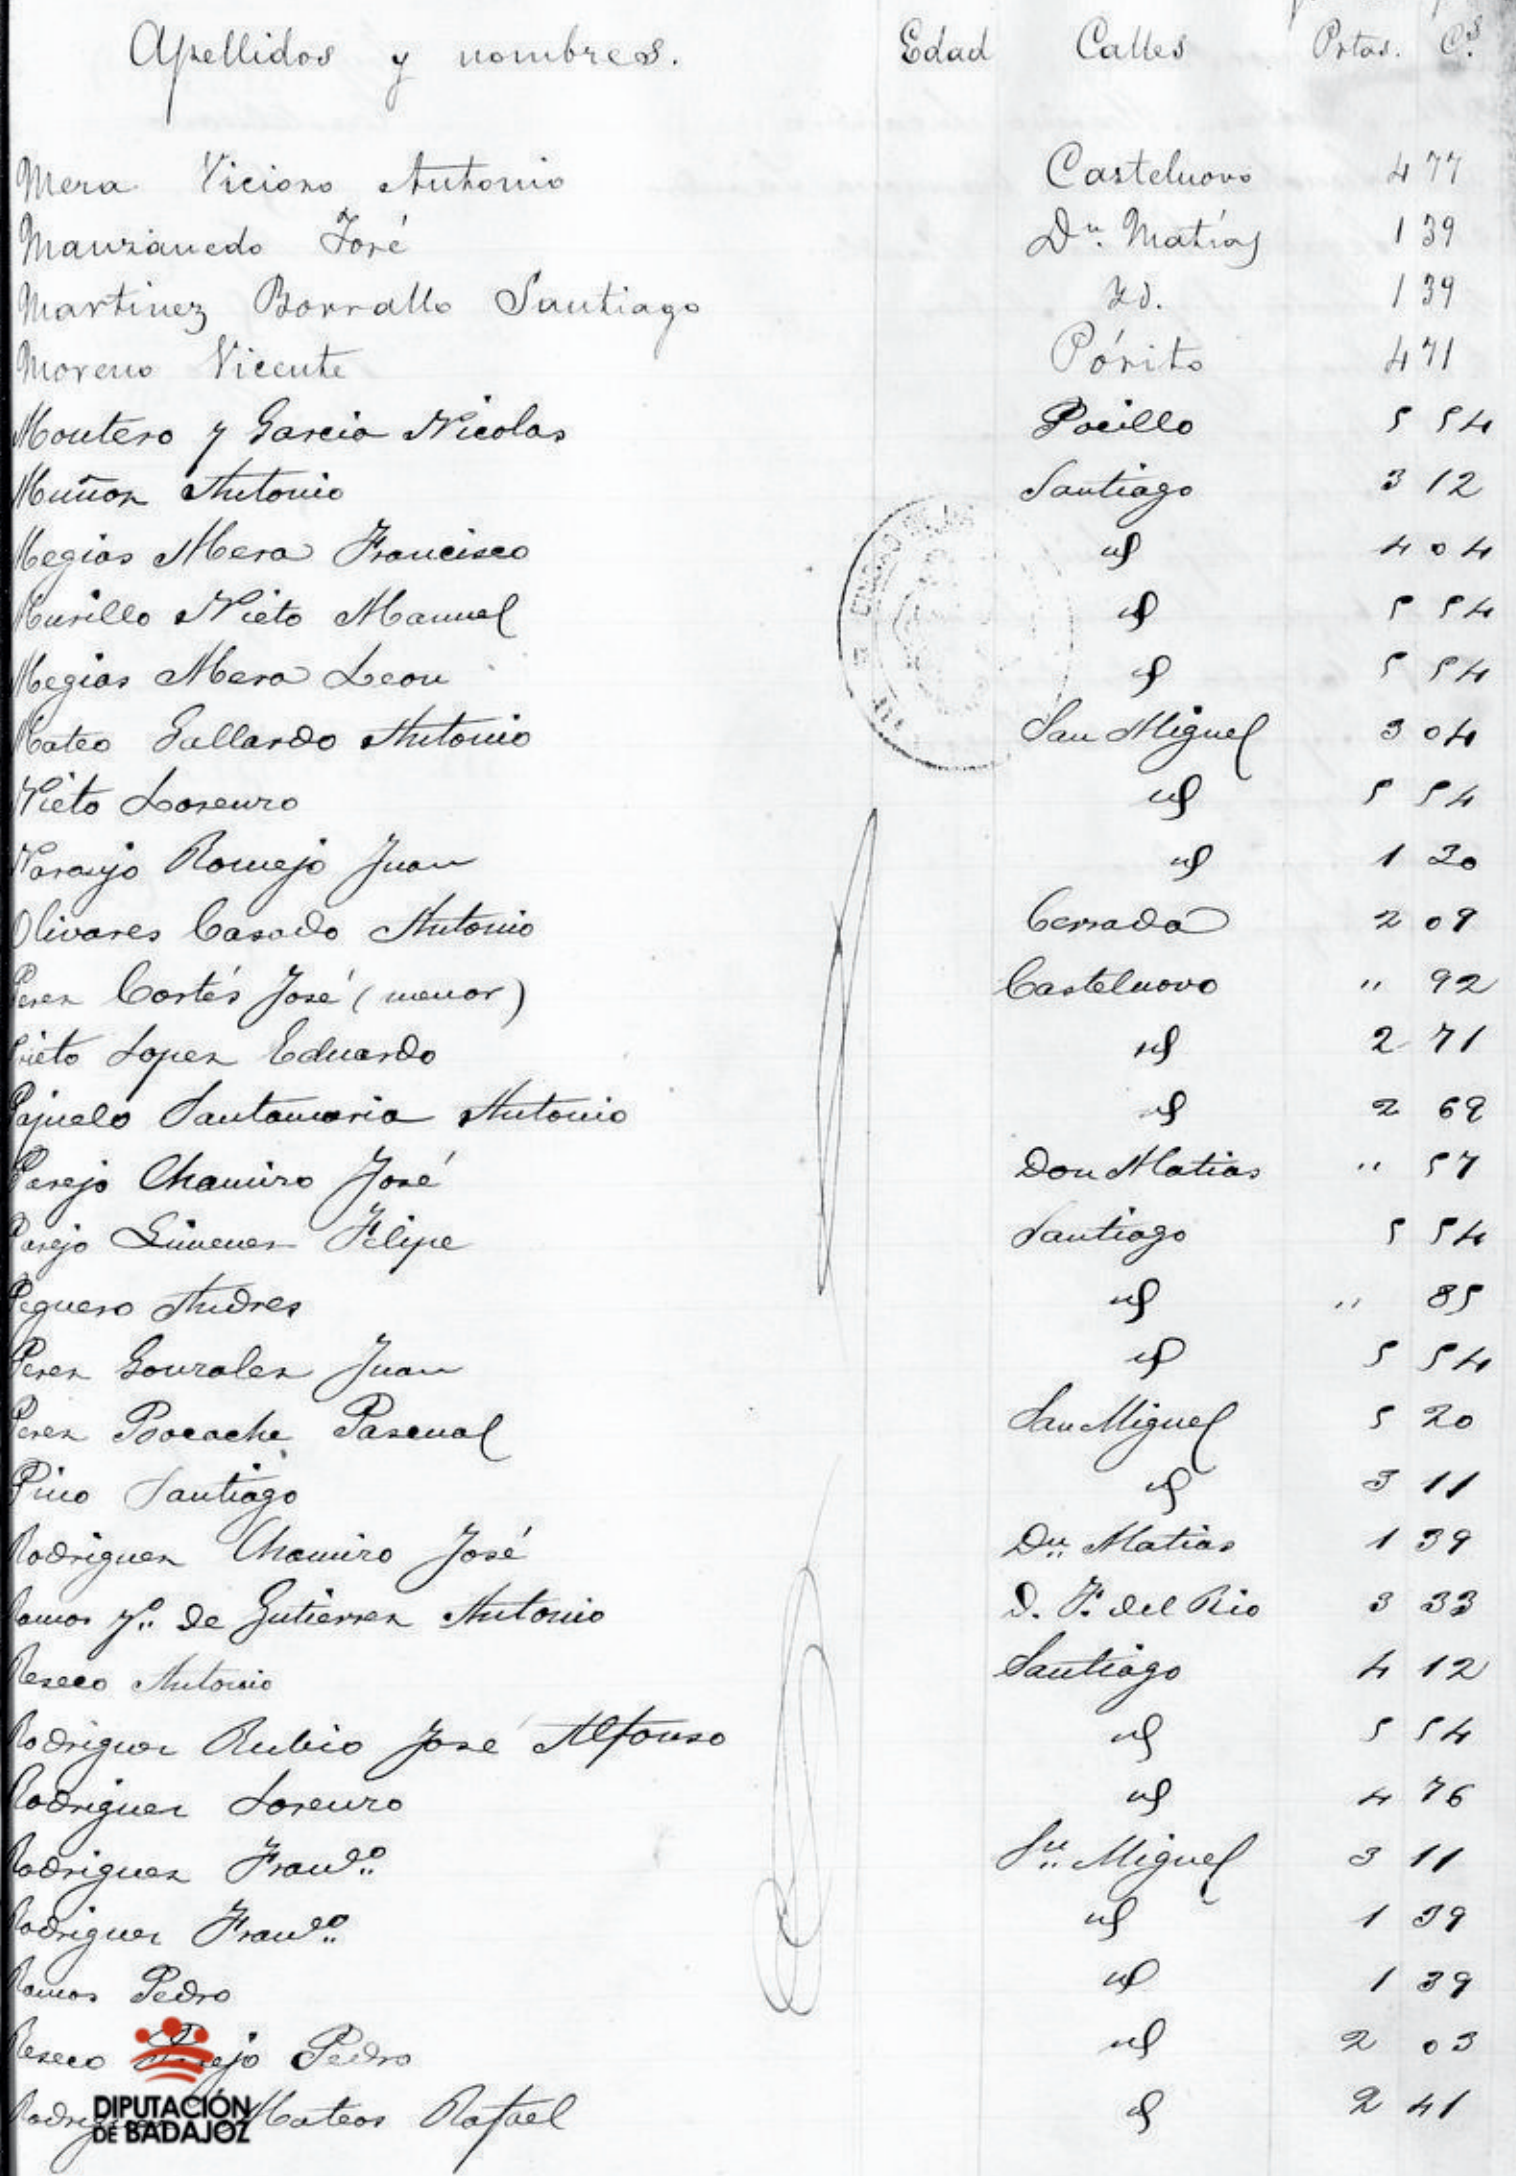 Apellidos y nombres. Edad Calles Pstas. Cs.
Mera Vicioso Antonio Castelnovo 4 77
Manzanedo José Dn. Matías 1 39
Martinez Borrallo Santiago Id. 1 39
Moreno Vicente Pósito 4 71
Montero y Garcia Nicolas Pocillo 5 54
Muñoz Antonio Santiago 3 12
Megias Mera Francisco id 4 04
Murillo Nieto Manuel id 5 54
Megias Mera Leon id 5 54
Mateo Gallardo Antonio San Miguel 3 04
Nieto Lorenzo id 5 54
Naranjo Romejo Juan id 1 30
Olivares Casado Antonio Cerrada 2 09
Perez Cortés José (menor) Castelnovo " 92
Prieto Lopez Eduardo id 2 71
Pajuelo Santamaria Antonio id 2 69
Parejo Chamizo José Don Matias " 57
Parejo Gimenez Felipe Santiago 5 54
Peguero Andres id " 85
Perez Gonzalez Juan id 5 54
Perez Pocache Pascual San Miguel 5 20
Pino Santiago id 3 11
Rodriguez Chamizo José Dn. Matias 1 39
Ramos y.. de Gutierrez Antonio D. F. del Rio 3 33
Reseco Antonio Santiago 4 12
Rodriguez Rubio José Alfonso id 5 54
Rodriguez Lorenzo id 4 76
Rodriguez Franco. Sn. Miguel 3 11
Rodriguez Franco. id 1 39
Ramos Pedro id 1 39
Reseco Pedro id 2 03
Rodriguez Mateos Rafael id 2 41
DIPUTACIÓN
DE BADAJOZ